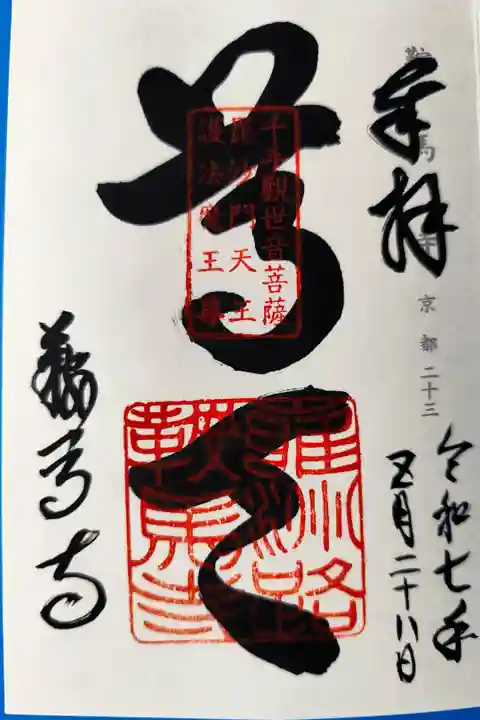 奉拝
鞍馬寺 京都二十三
令和七年
五月二十八日
尊天
千手觀世音菩薩
毘沙門天王
護法魔王尊
鞍馬寺